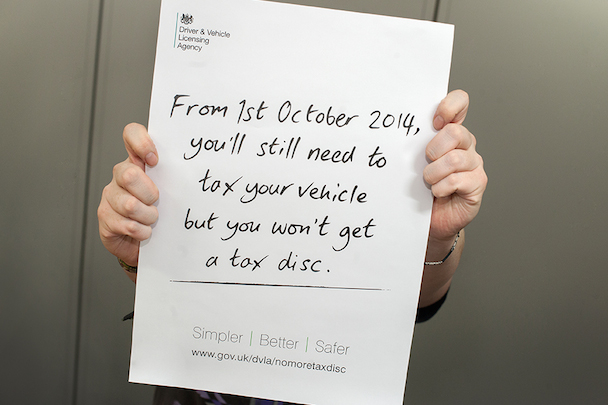 Driver & Vehicle
Licensing
Agency
From 1st October 2014,
you'll still need to
tax your vehicle
but you won't get
a tax disc.
Simpler | Better | Safer
www.gov.uk/dvla/nomoretaxdisc